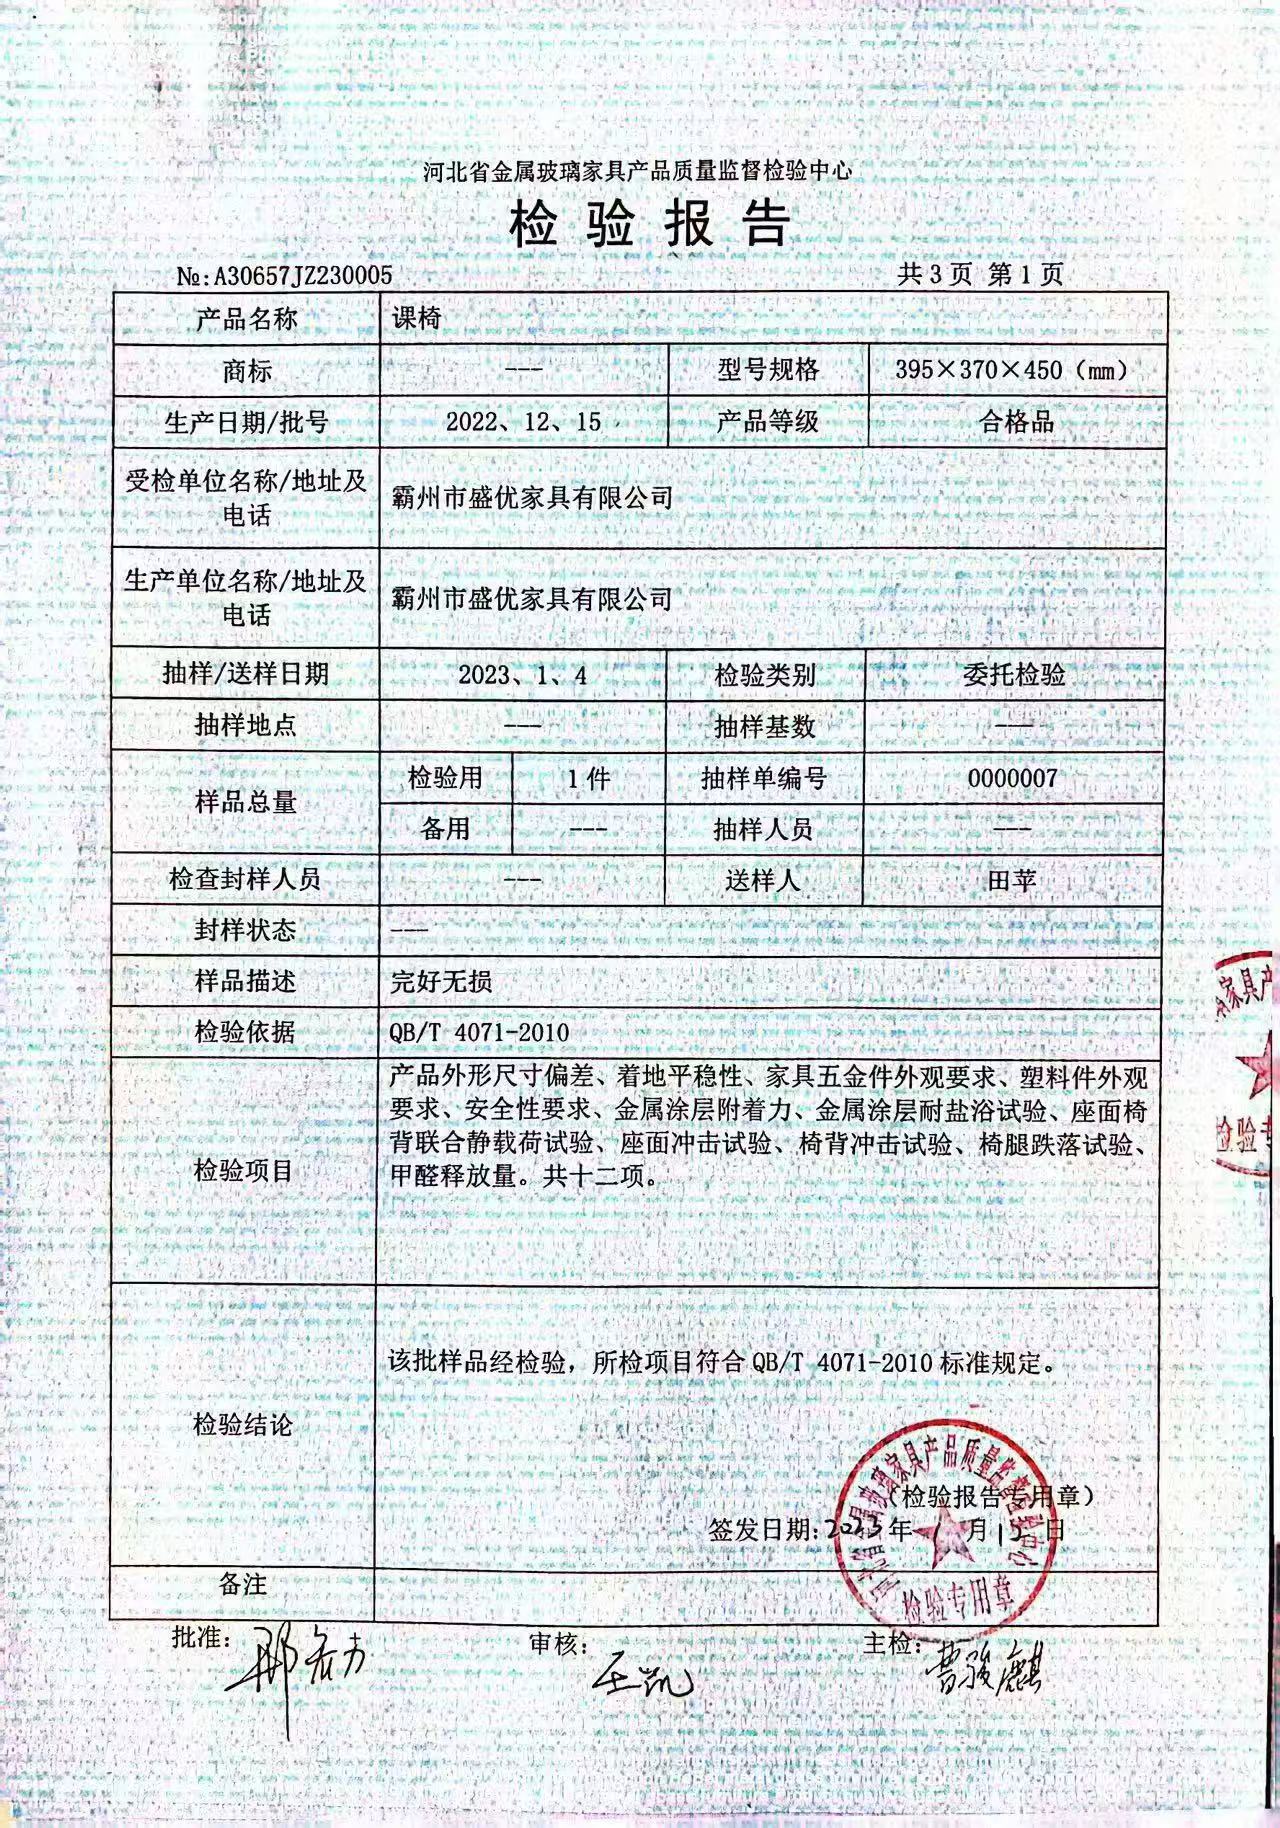 河北省金属玻璃家具产品质量监督检验中心
检验报告
№:A30657JZ230005 共3页 第1页
产品名称 课椅
商标 --- 型号规格 395×370×450（mm）
生产日期/批号 2022、12、15 产品等级 合格品
受检单位名称/地址及
电话
霸州市盛优家具有限公司
生产单位名称/地址及
电话
霸州市盛优家具有限公司
抽样/送样日期 2023、1、4 检验类别 委托检验
抽样地点 --- 抽样基数 ---
样品总量 检验用 1件 抽样单编号 0000007
备用 --- 抽样人员 ---
检查封样人员 --- 送样人 田苹
封样状态 ---
样品描述 完好无损
检验依据 QB/T 4071-2010
检验项目
产品外形尺寸偏差、着地平稳性、家具五金件外观要求、塑料件外观
要求、安全性要求、金属涂层附着力、金属涂层耐盐浴试验、座面椅
背联合静载荷试验、座面冲击试验、椅背冲击试验、椅腿跌落试验、
甲醛释放量。共十二项。
检验结论
该批样品经检验，所检项目符合QB/T 4071-2010标准规定。
（检验报告专用章）
签发日期:2023年 月12日
河北省金属玻璃家具产品质量监督检验中心
检验专用章
备注
批准: 审核: 王凯 主检: 曹骏麒
家具产
检验专